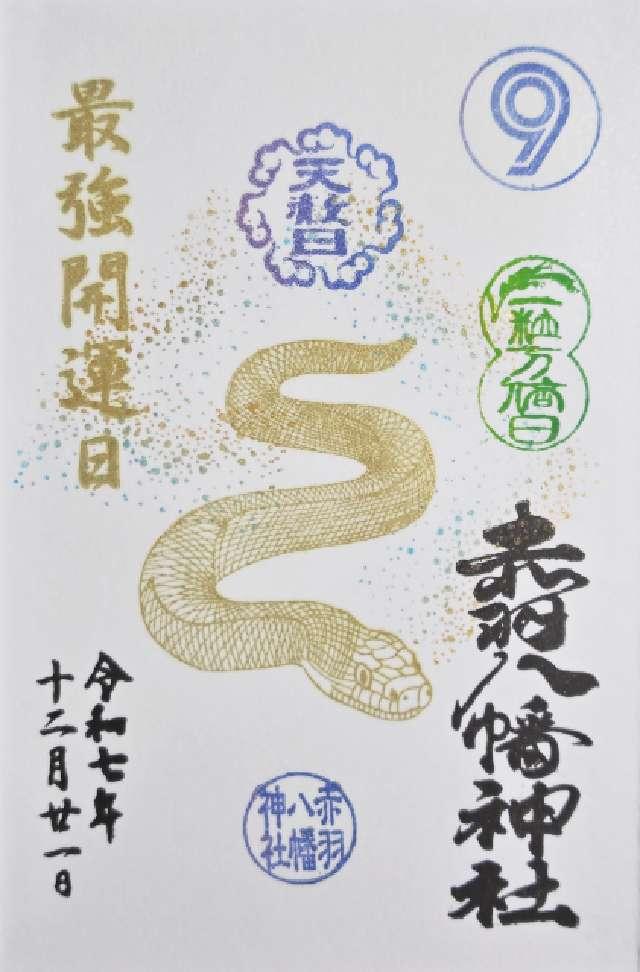 ⑨
天赦日
一粒万倍日
赤羽八幡神社
最強開運日
赤羽
八幡
神社
令和七年
十二月廿一日